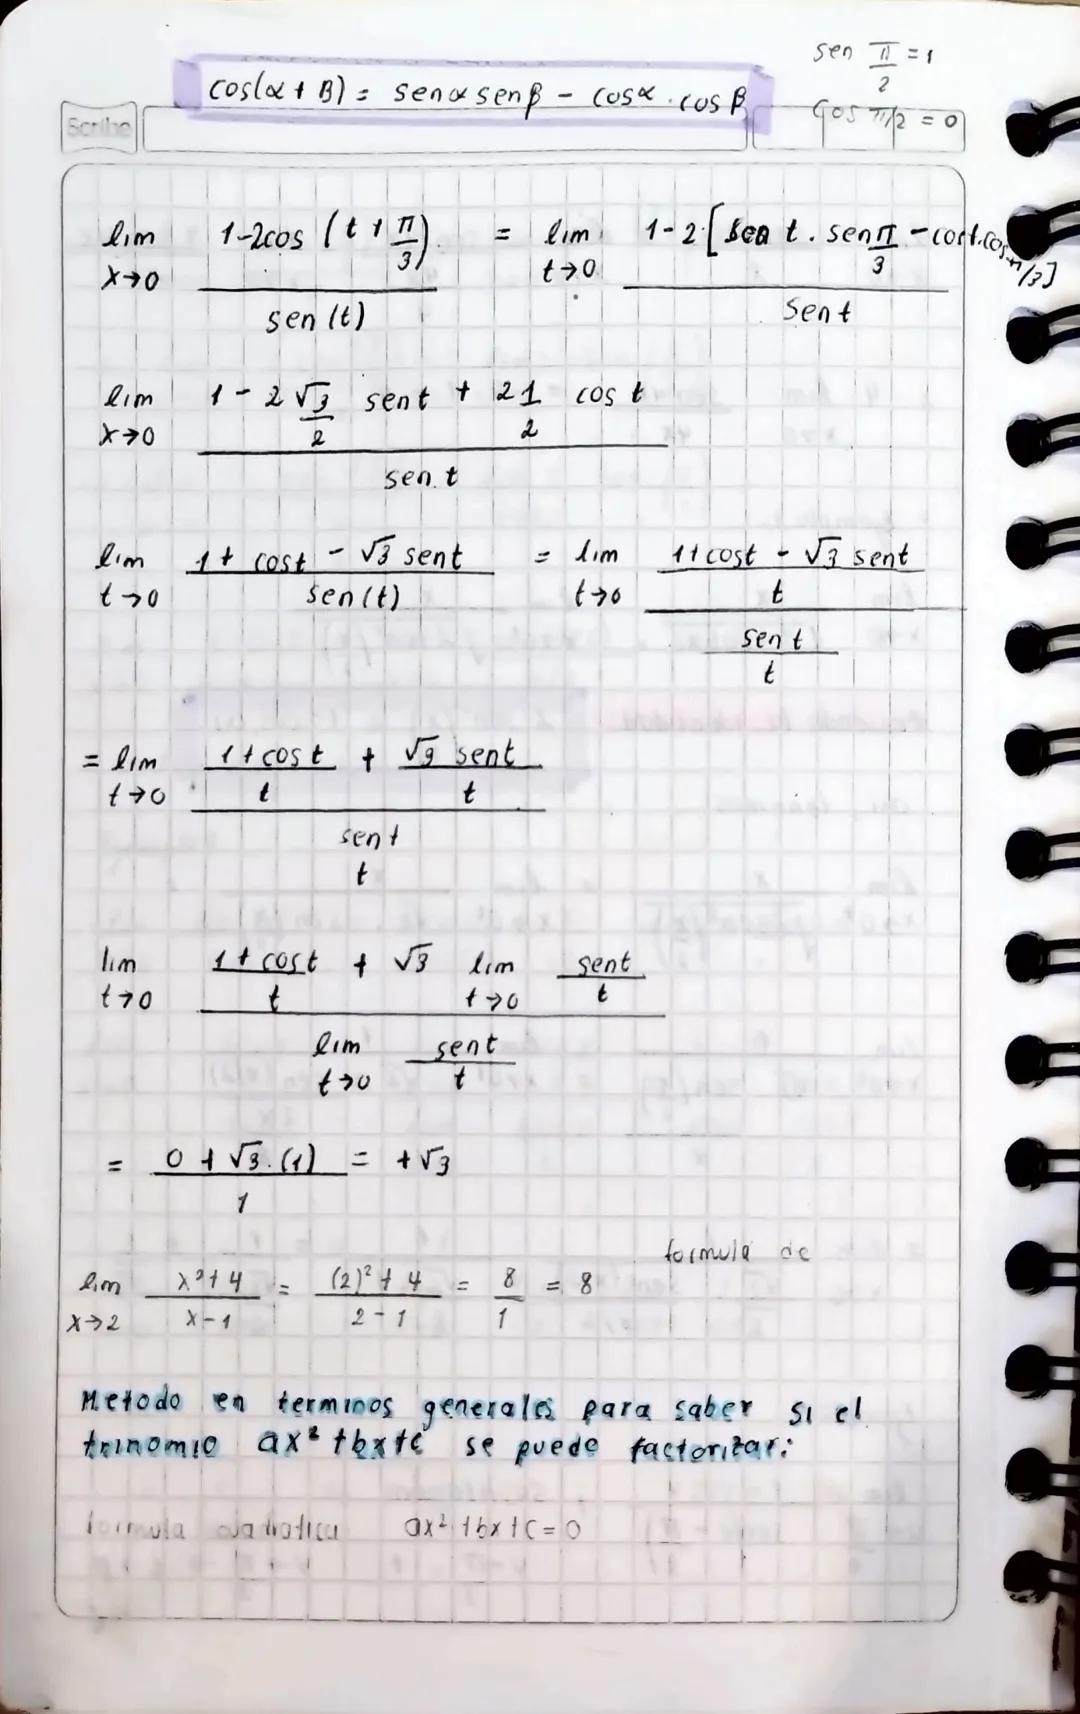 sen π/2 = 1
cos(α + β) = senα senβ - cosα . cos β
cos π/2 = 0
Scribe
lim x→0 1-2cos (t + π/3) / sen (t) = lim t→0 1-2 [sen t . sen π/3 - cost.cos π/3] / sen t
lim x→0 1 - 2 √3/2 sent + 2 1/2 cos t / sen. t
lim t→0 1 + cost - √3 sent / sen(t) = lim t→0 1+cost - √3 sent / t / sent / t
= lim t→0 1+cost / t + √3 sent / t / sent t
lim t→0 1+cost / t + √3 lim t→0 sent / t / lim t→0 sent / t
= 0 + √3.(1) / 1 = +√3
formula de
lim x→2 x²+4 / x-1 = (2)²+4 / 2-1 = 8/1 = 8
Metodo en terminos generales para saber si el
trinomio ax²+bx+c se puede factorizar:
formula cuadratica ax²+bx+c=0